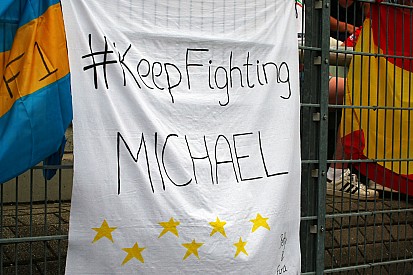 F1
#KeepFighting
MICHAEL